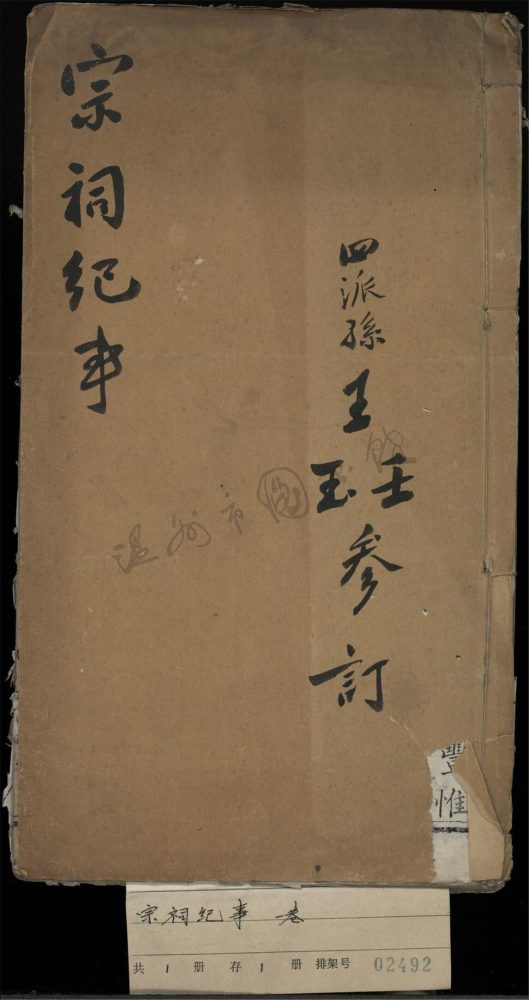 四派孫王壬玉參訂
宗祠紀事
温州市圖
豐
惟
宗祠紀事 一卷
共 1 册 存 1 册 排架号 02492